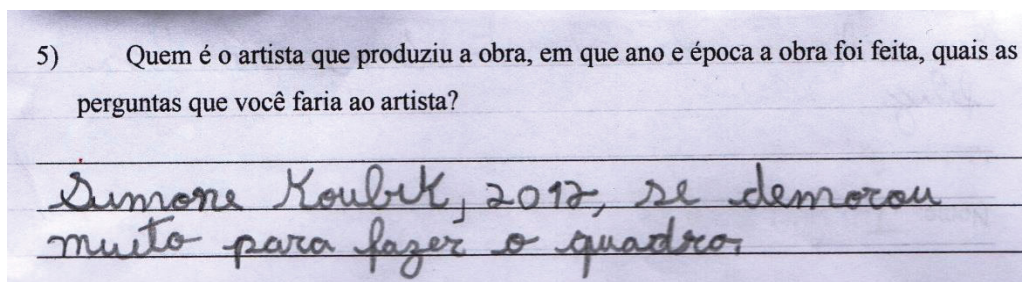 5) Quem é o artista que produziu a obra, em que ano e época a obra foi feita, quais as
perguntas que você faria ao artista?
Simone Koubik, 2012, se demorou
muito para fazer o quadro,